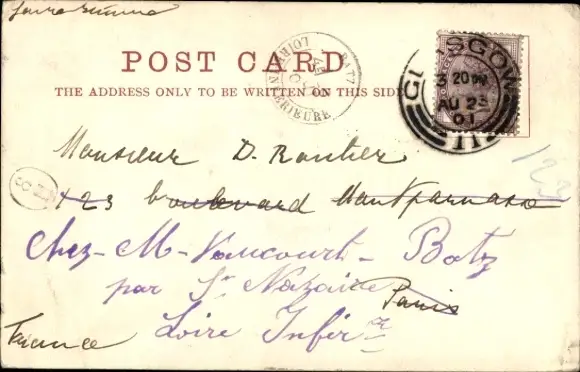 POST CARD
THE ADDRESS ONLY TO BE WRITTEN ON THIS SIDE
BATZ
LOIRE INFERIEURE
GLASGOW
3 20 PM
AU 23
01
Monsieur D.
123 boulevard Montparnasse
123
Chez - M - Vancourt - Batz
par St Nazaire
Paris
Loire Inférre
France